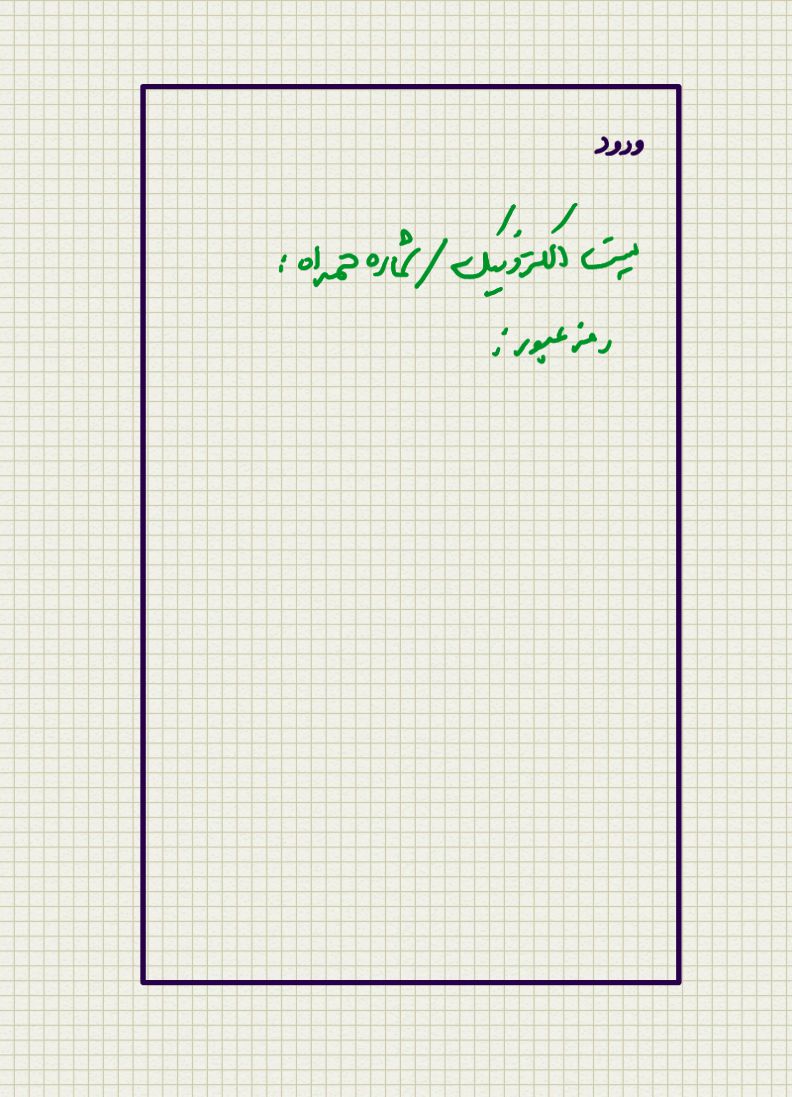 ورود
پست الکترونیک / شماره همراه :
رمز عبور :